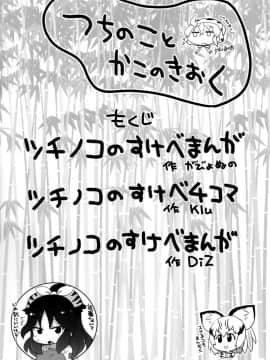 つちのこと
かこのきおく
もくじ
ツチノコのすけべまんが
作 がぞょぬの
ツチノコのすけべ4コマ
作 Klu
ツチノコのすけべまんが
作 DiZ